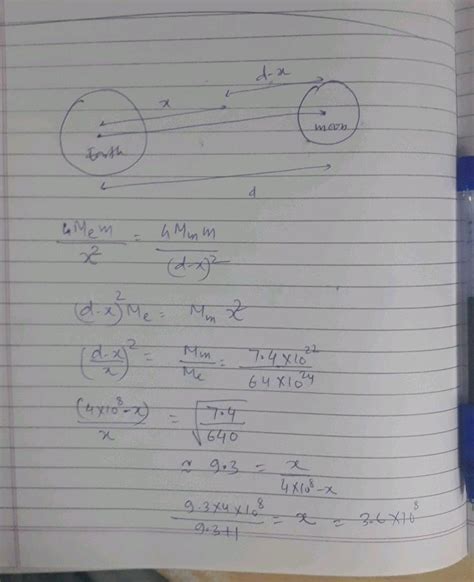 d-x
x
Earth
moon
d
GMem/x² = GMmm/(d-x)²
(d-x)²Me = Mm x²
((d-x)/x)² = Mm/Me = 7.4×10²²/64×10²⁴
(4×10⁸-x)/x = √(7.4/640)
≈ 9.3 = x/(4×10⁸-x)
(9.3×4×10⁸)/(9.3+1) = x = 3.6×10⁸